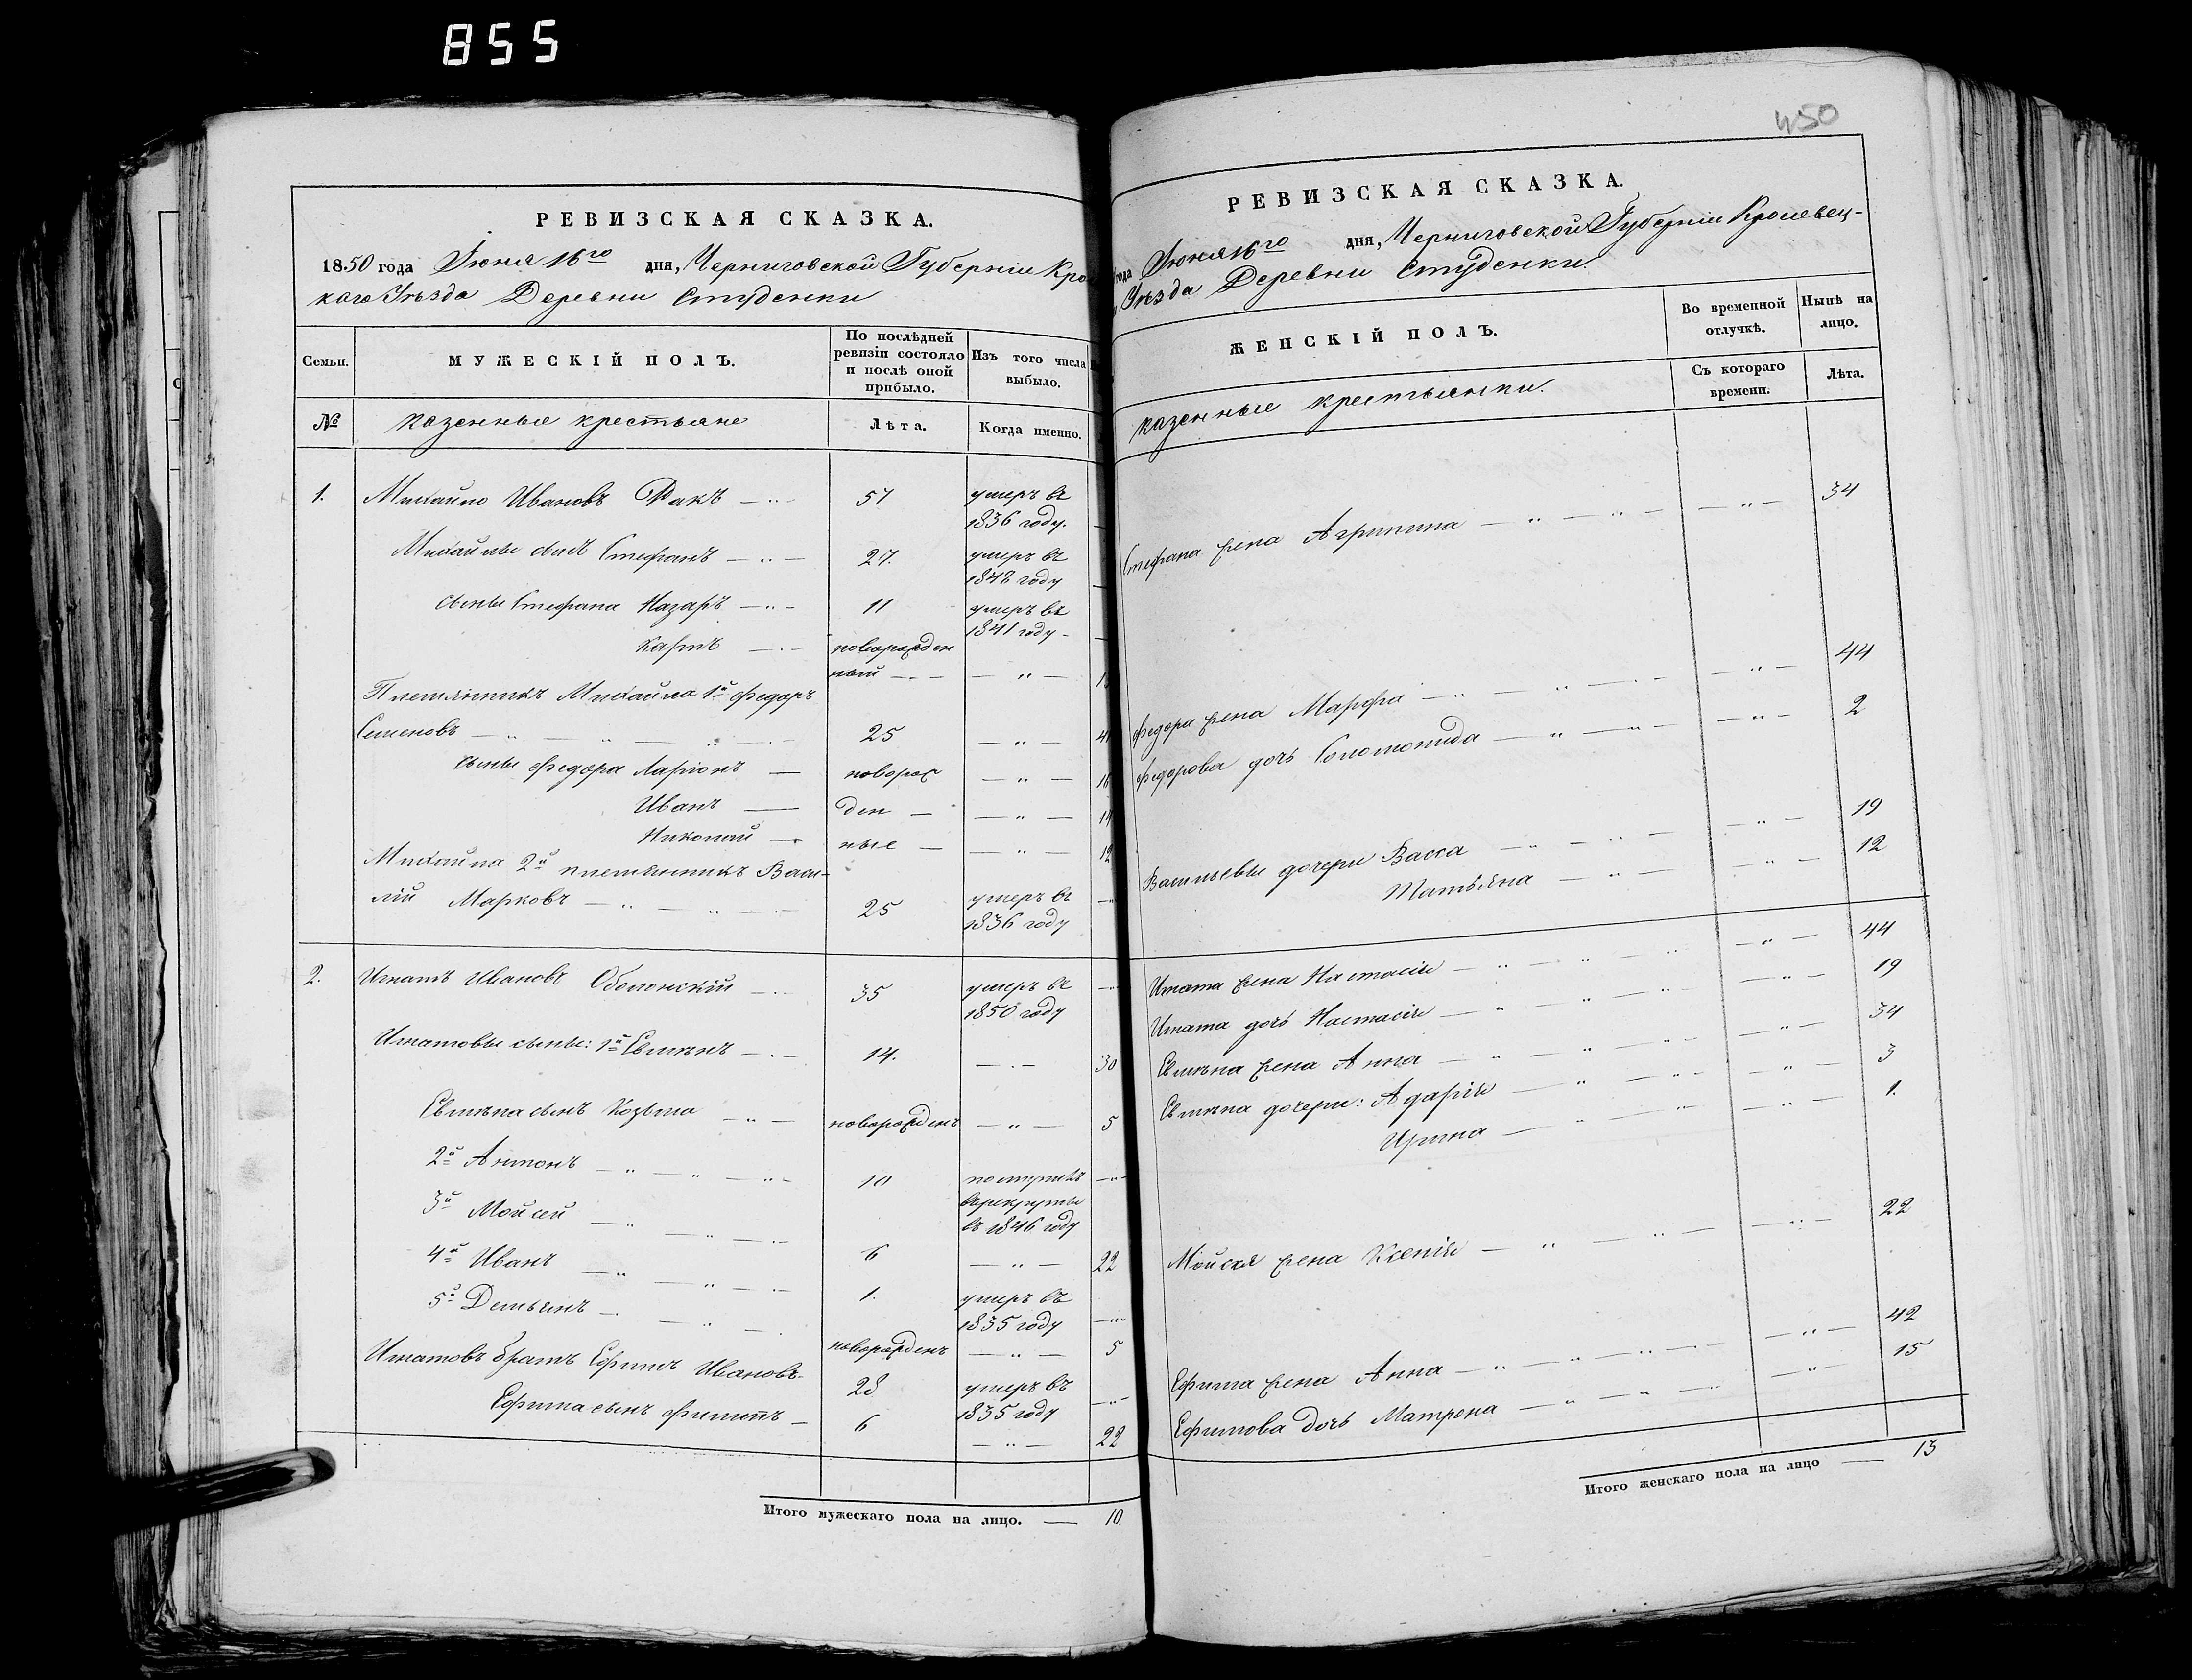 855
РЕВИЗСКАЯ СКАЗКА.
1850 года Іюня 16го дня, Черниговской Губерніи Кро
каго Уѣзда Деревни Студенки
Семьи.
МУЖЕСКІЙ ПОЛЪ.
По послѣдней
ревизіи состояло
и послѣ оной
прибыло.
Изъ того числа
выбыло.
№
казенные крестьяне
Лѣта.
Когда именно.
1. Михайло Ивановъ Ракъ — 57 умеръ въ
1836 году.
Михайлы сынъ Стефанъ — 27. умеръ въ
1848 году
сыны Стефана Назаръ — 11 умеръ въ
1841 году
Карпъ — новорожден
ный — " — 1
Племянникъ Михайла 1й Федоръ
Семеновъ — " — 25 — " — 41
сыны Федора Ларіонъ — новорож — " — 16
Иванъ — ден — " — 14
Николай — ные — " — 12
Михайла 2й племянникъ Васи-
лій Марковъ — " — 25 умеръ въ
1836 году
2. Игнатъ Ивановъ Оболонскій — 35 умеръ въ
1850 году
Игнатовы сыны: 1й Евтихъ — 14. — " — 30
сынъ Козьма — новорожденъ — " — 5
2й Антонъ — " — 10 поступилъ
врекруты
въ 1846 году
3й Мойсей — " — 6 — " — 22
4й Иванъ — " — 1. умеръ въ
1835 году
5й Демьянъ — " — новорожденъ — " — 5
Игнатовъ братъ Ефимъ Ивановъ 28 умеръ въ
1835 году
Ефима сынъ Филипъ — 6 — " — 22
Итого мужескаго пола на лицо. — 10.
450
РЕВИЗСКАЯ СКАЗКА.
года Іюня 16го дня, Черниговской Губерніи Кролевец-
Уѣзда Деревни Студенки.
ЖЕНСКІЙ ПОЛЪ.
Во временной
отлучкѣ.
Нынѣ на
лицо.
казенные крестьянки.
Съ котораго
времени.
Лѣта.
Стефана жена Агрипина — " — 34
Федора жена Марфа — " — 44
Федорова дочь Соломонида — " — 2
Васильевы дочери Васса — " — 19
Татьяна — " — 12
Игната жена Настасія — " — 44
Игната дочь Настасія — " — 19
жена Анна — " — 34
дочери: Адарія — " — 3
Ирина — " — 1.
Мойсея жена Ксенія — " — 22
Ефима жена Анна — " — 42
Ефимова дочь Матрона — " — 15
Итого женскаго пола на лицо — 13